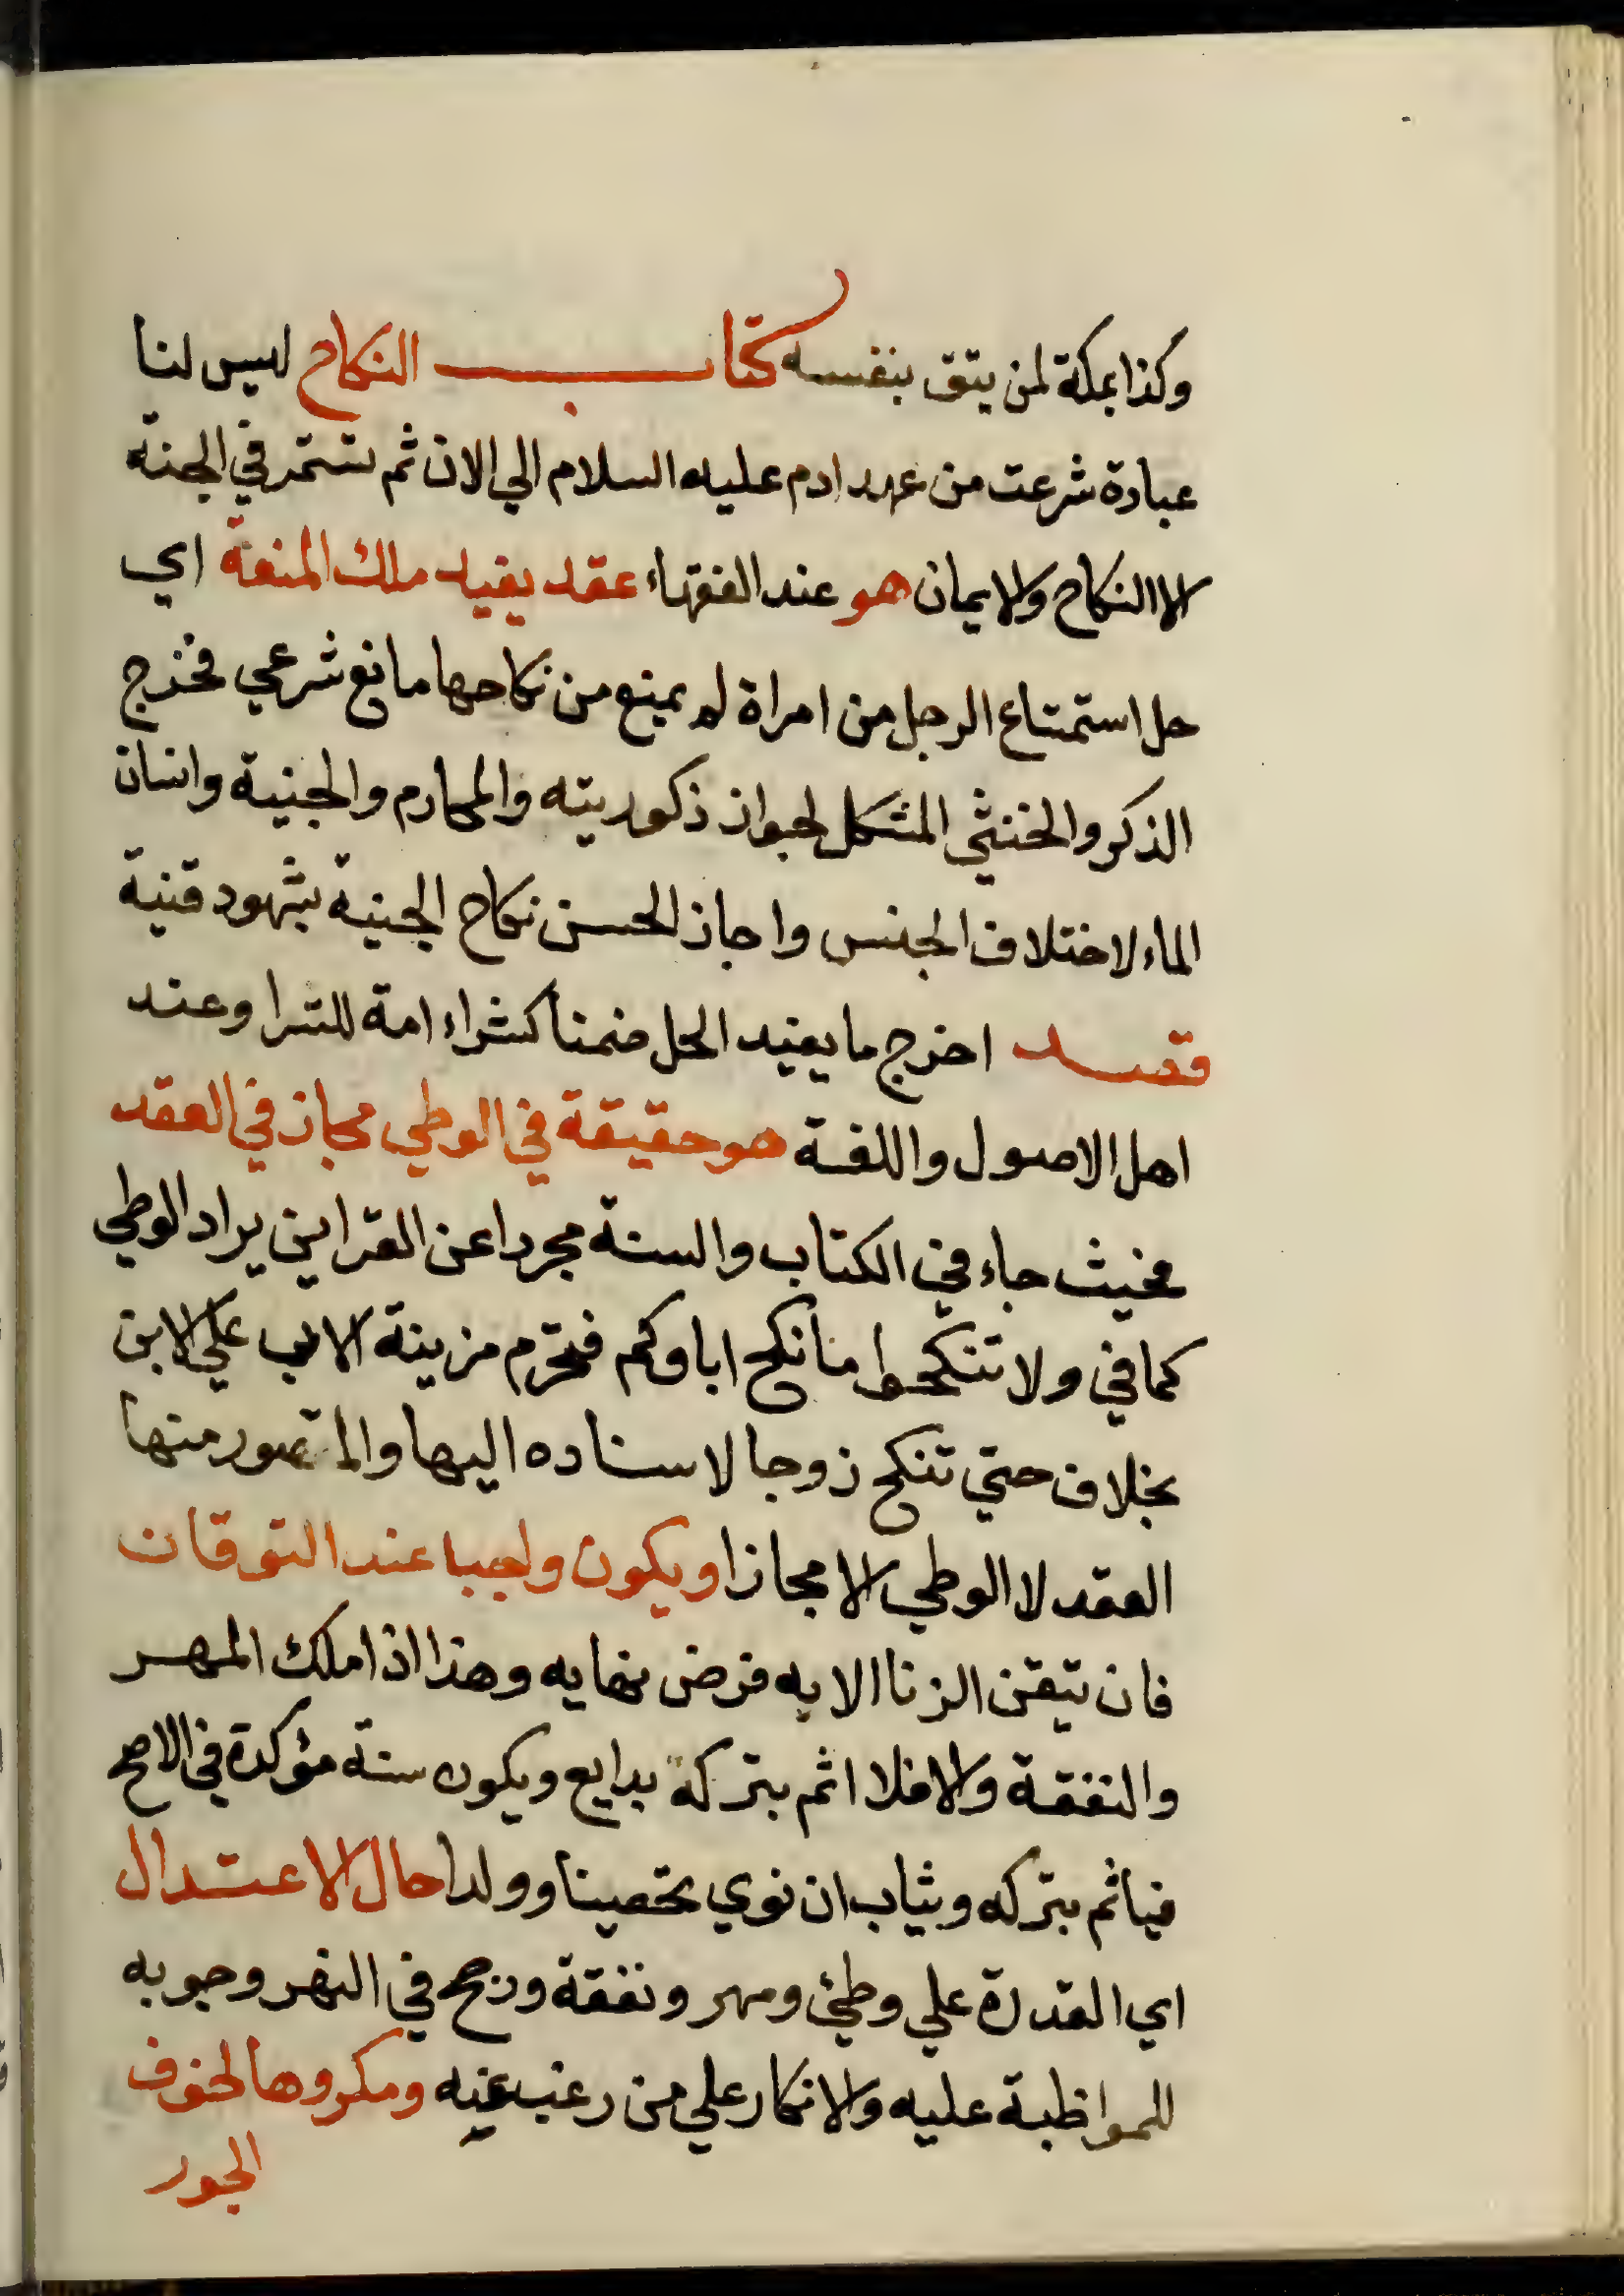 وكذا بمكة لمن يتق بنفسه كتاب النكاح ليس لنا
عبادة شرعت من عهد ادم عليه السلام الي الان ثم تستمر في الجنة
الا النكاح والايمان هو عند الفقهاء عقد يفيد ملك المتعة اي
حل استمتاع الرجل من امراة لم يمنع من نكاحها مانع شرعي فخرج
الذكر والخنثي المشكل لجواز ذكوريته والمحارم والجنية وانسان
الماء لاختلاف الجنس واجاز الحسن نكاح الجنية بشهود قنية
قصدا اخرج ما يفيد الحل ضمنا كشراء امة للتسرا وعند
اهل الاصول واللغة هو حقيقة في الوطي مجاز في العقد
فحيث جاء في الكتاب والسنة مجردا عن القراين يراد الوطي
كما في ولا تنكحوا ما نكح اباوكم فتحرم مزينة الاب علي الابن
بخلاف حتي تنكح زوجا لاسناده اليها والمتصور منها
العقد لا الوطي الا مجازا ويكون واجبا عند التوقان
فان تيقن الزنا الا به فرض نهايه وهذا اذا ملك المهر
والنفقة والا فلا اثم بتركه بدايع ويكون سنة مؤكدة في الاصح
فياثم بتركه ويثاب ان نوي تحصينا وولدا حال الاعتدال
اي القدرة علي وطئ ومهر ونفقة ورجح في النهر وجوبه
للمواظبة عليه والانكار علي من رغب عنه ومكروها لخوف
الجور